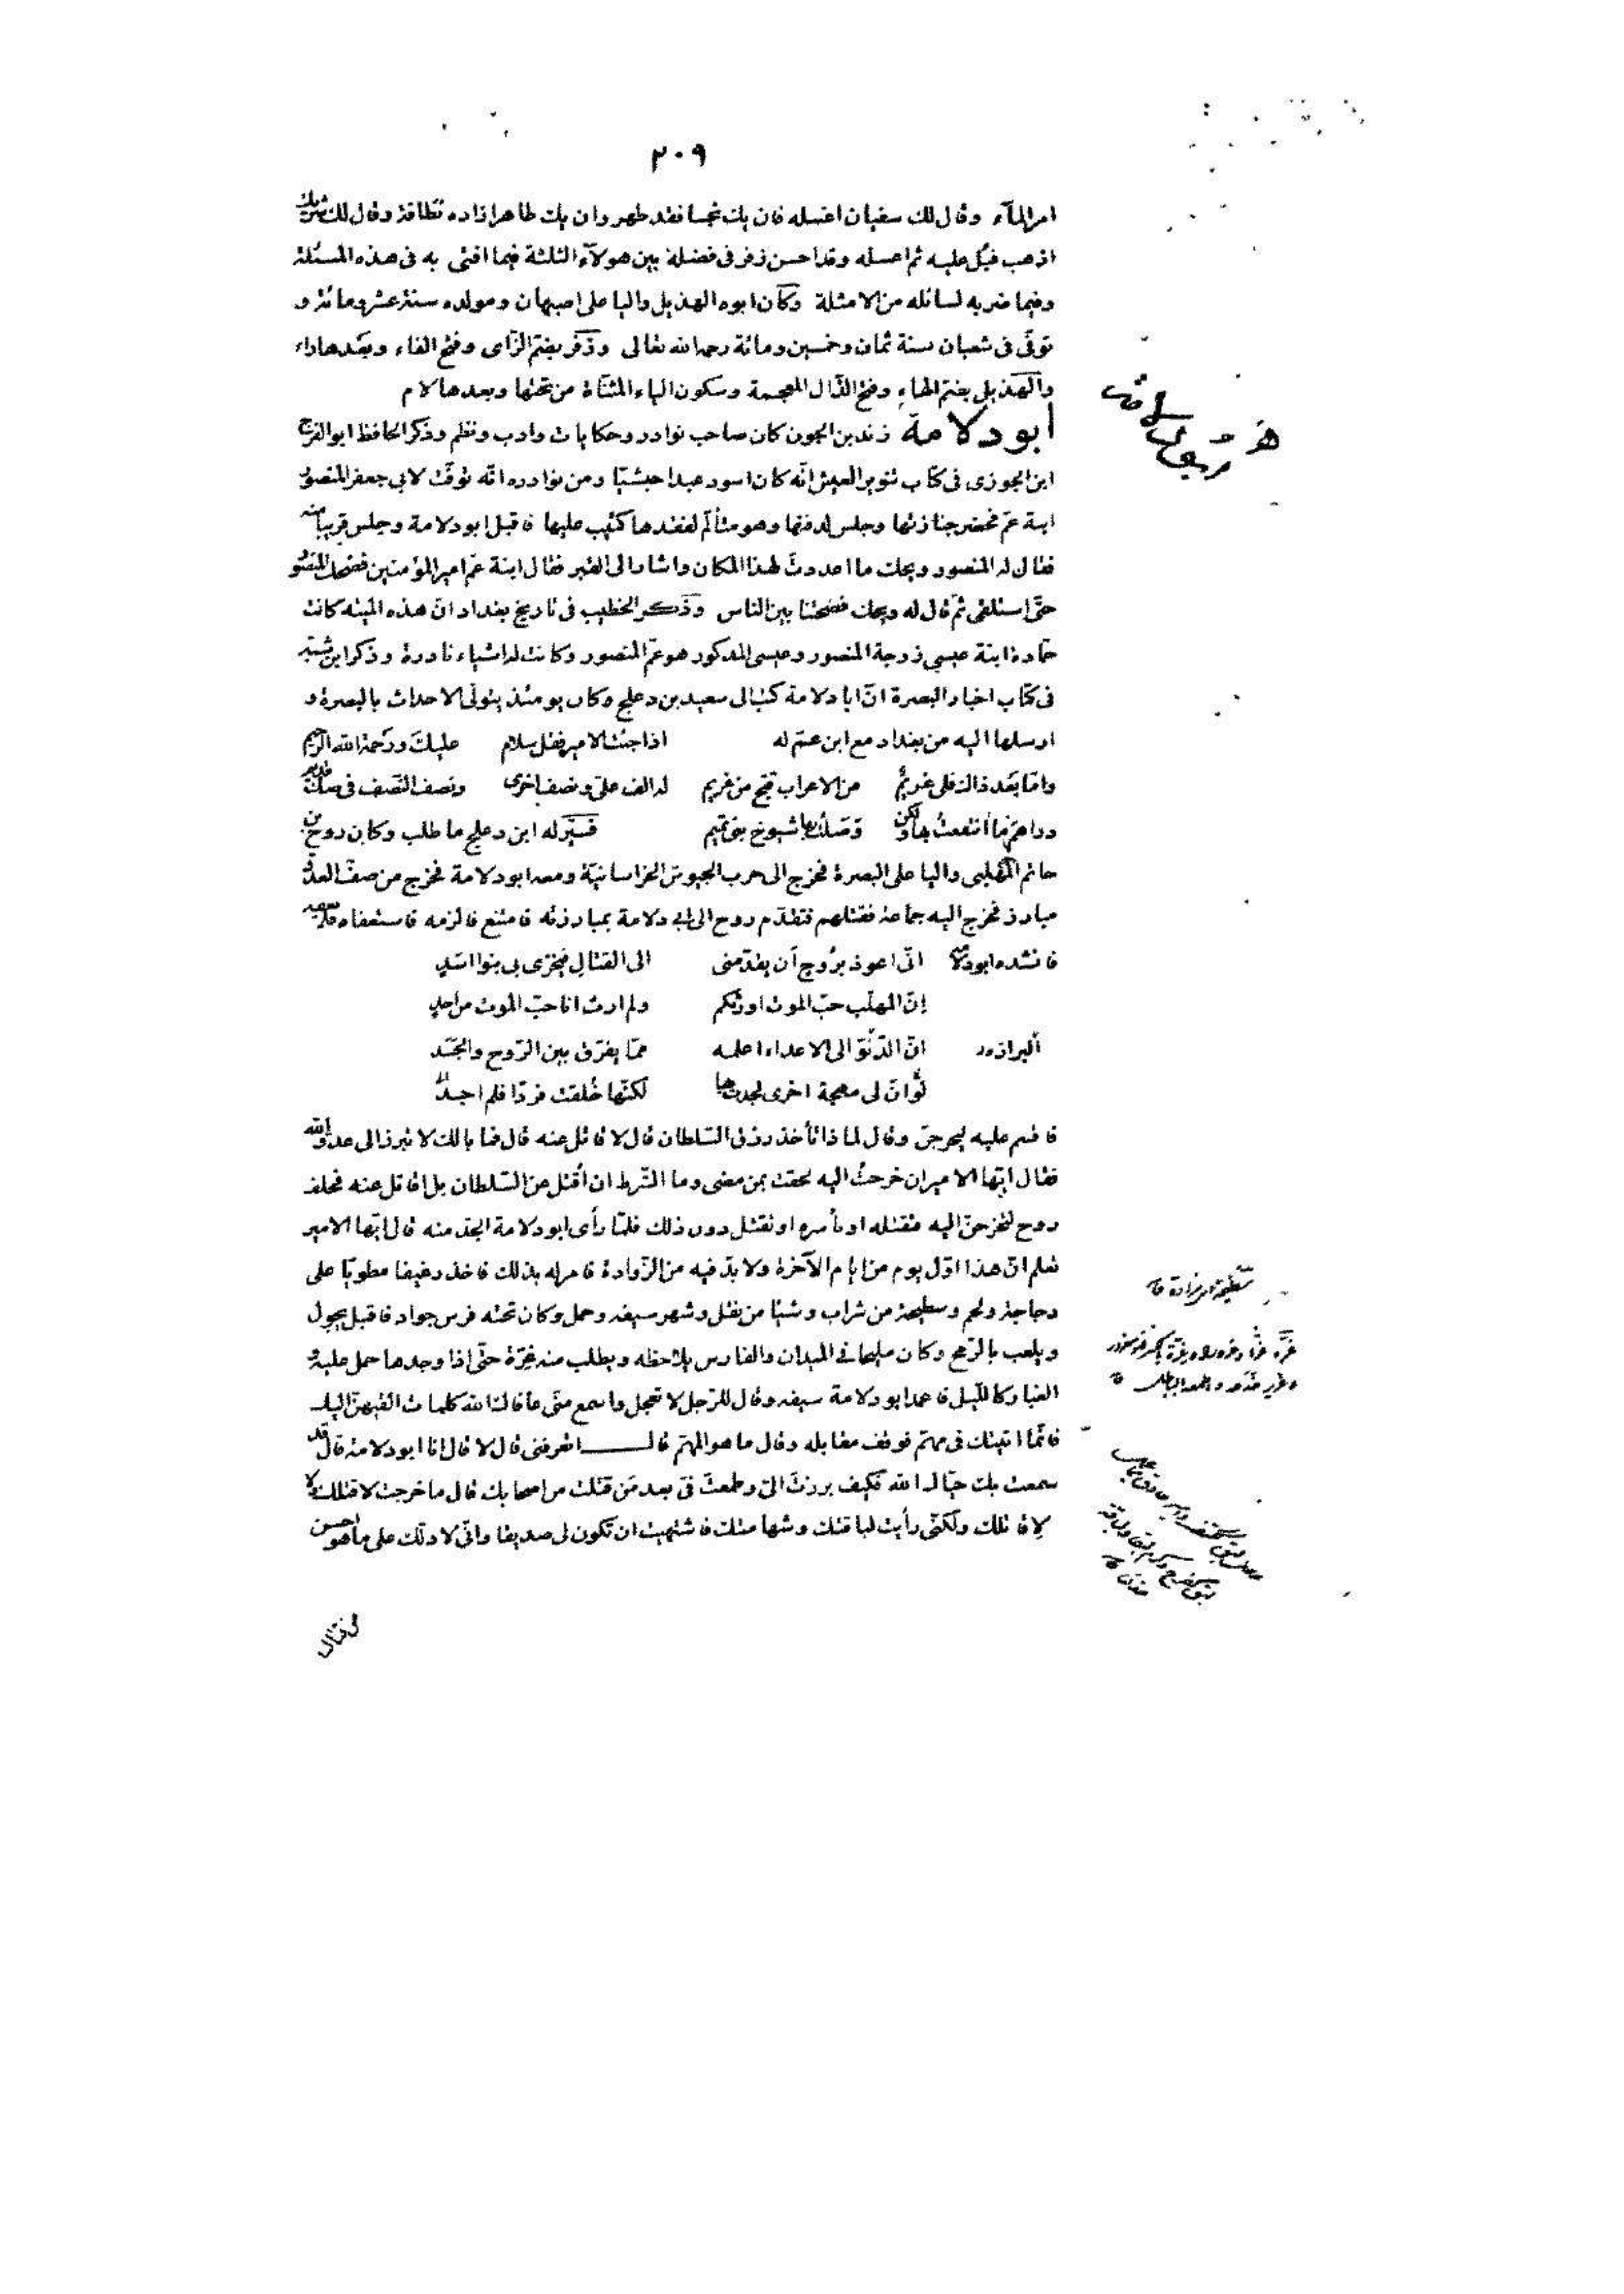 ٢٠٩
امر المآء وقال لك سفيان اغسله فان يك نجسا فقد طهر وان يك طاهرا زاده نظافة وقال لك شريك
اذهب فبُل عليه ثم اغسله وقد احسن زفر فى فضله بين هولآء الثلثة فيما افتى به فى هذه المسئلة
وفيما ضربه لسائله من الامثلة وكان ابوه الهذيل واليا على اصبهان ومولده سنة عشر ومائة و
توفّى فى شعبان سنة ثمان وخمسين ومائة رحمه الله تعالى وزفر بضم الزّاى وفتح الفاء وبعدها راء
والهذيل بضم الهاء وفتح الذّال المعجمة وسكون الياء المثنّاة من تحتها وبعدها لام
أبو دلامة زند بن الجون كان صاحب نوادر وحكايات وادب ونظم وذكر الحافظ ابو الفرج
ابن الجوزى فى كتاب تنوير الغبش انّه كان اسود عبدا حبشيّا ومن نوادره انّه توفّت لابي جعفر المنصور
ابنة عمّ فحضر جنازتها وجلس لدفنها وهو متألّم لفقدها كئيب عليها فاقبل ابو دلامة وجلس قريبا منه
فقال له المنصور ويحك ما اعددتَ لهذا المكان واشار الى القبر فقال ابنة عمّ امير المؤمنين فضحك المنصور
حتّى استلقى ثمّ قال له ويحك فضحتنا بين الناس وذكر الخطيب فى تاريخ بغداد انّ هذه الميته كانت
حمّادة ابنة عيسى زوجة المنصور وعيسى المذكور هو عمّ المنصور وكانت له اشياء نادرة وذكر ابن شبّة
فى كتاب اخبار البصرة انّ ابا دلامة كتب الى سعيد بن دعلج وكان يومئذ يتولّى الاحداث بالبصرة و
ارسلها اليه من بغداد مع ابن عمّ له اذا جئت الامير فقل سلام عليك ورحمة الله الرحيم
وامّا بعد ذاك فلى غريمٌ من الاعراب قبّح من غريم له الف علىّ ونصف اخرى ونصف النّصف فى صكّ قديم
دراهم ما انتفعتُ بها ولكن وصلتُ بها شيوخ بنى تميم فسيّر له ابن دعلج ما طلب وكان روح بن
حاتم المهلبى واليا على البصرة فخرج الى حرب الجيوش الخراسانيّة ومعه ابو دلامة فخرج من صفّ العدوّ
مبارز فخرج اليه جماعة فقتلهم فتقدّم روح الى ابي دلامة بمبارزته فامتنع فالزمه فاستعفاه فلم يعفه
فانشده ابو دلامة انّى اعوذ برُوحٍ أن يقدّمنى الى القتالِ فيخزى بى بنوا اسَدِ
إنّ المهلّب حبّ الموت اورثكم ولم ارث انا حبّ الموت من احدِ
انّ الدّنوّ الى الاعداء اعلمه ممّا يفرّق بين الرّوح والجَسَد
لَو انّ لى مهجة اخرى لجدت بها لكنّها خُلقت فردًا فلم اجدُ
فاقسم عليه ليخرجنّ وقال لماذا تأخذ رزق السّلطان قال لا قاتل عنه قال فما بالك لا تبرز الى عدوّ الله
فقال ايّها الامير ان خرجتُ اليه لحقت بمن مضى وما الشّرط ان اُقتل عن السّلطان بل اقاتل عنه فحلف
روح لتخرجنّ اليه فتقتله او تأسره او تقتل دون ذلك فلمّا رأى ابو دلامة الجدّ منه قال ايّها الامير
تعلم انّ هذا اوّل يوم من ايام الآخرة ولا بدّ فيه من الزّوادة فامر له بذلك فاخذ رغيفا مطويّا على
دجاجة ولحم وسطيحة من شراب وشيئا من نقل وشهر سيفه وحمل وكان تحته فرس جواد فاقبل يجول
ويلعب بالرّمح وكان مليحا فى الميدان والفارس يلاحظه ويطلب منه غِرّة حتّى اذا وجدها حمل عليه و
الغبار كاللّيل فاغمد ابو دلامة سيفه وقال للرّجل لا تعجل واسمع منّى عافاك الله كلمات القيهنّ اليك
فانّما اتيتك فى مهمّ فوقف مقابله وقال ما هو المهمّ قال اتعرفنى قال لا قال انا ابو دلامة قال قد
سمعت بك حيّاك الله فكيف برزتَ الىّ وطمعتَ فىّ بعد مَن قتلت من اصحابك قال ما خرجت لاقتلك ولا
لاقاتلك ولكنّى رأيت لباقتك وشهامتك فاشتهيت ان تكون لى صديقا وانّى لادلّك على ما هو احسن